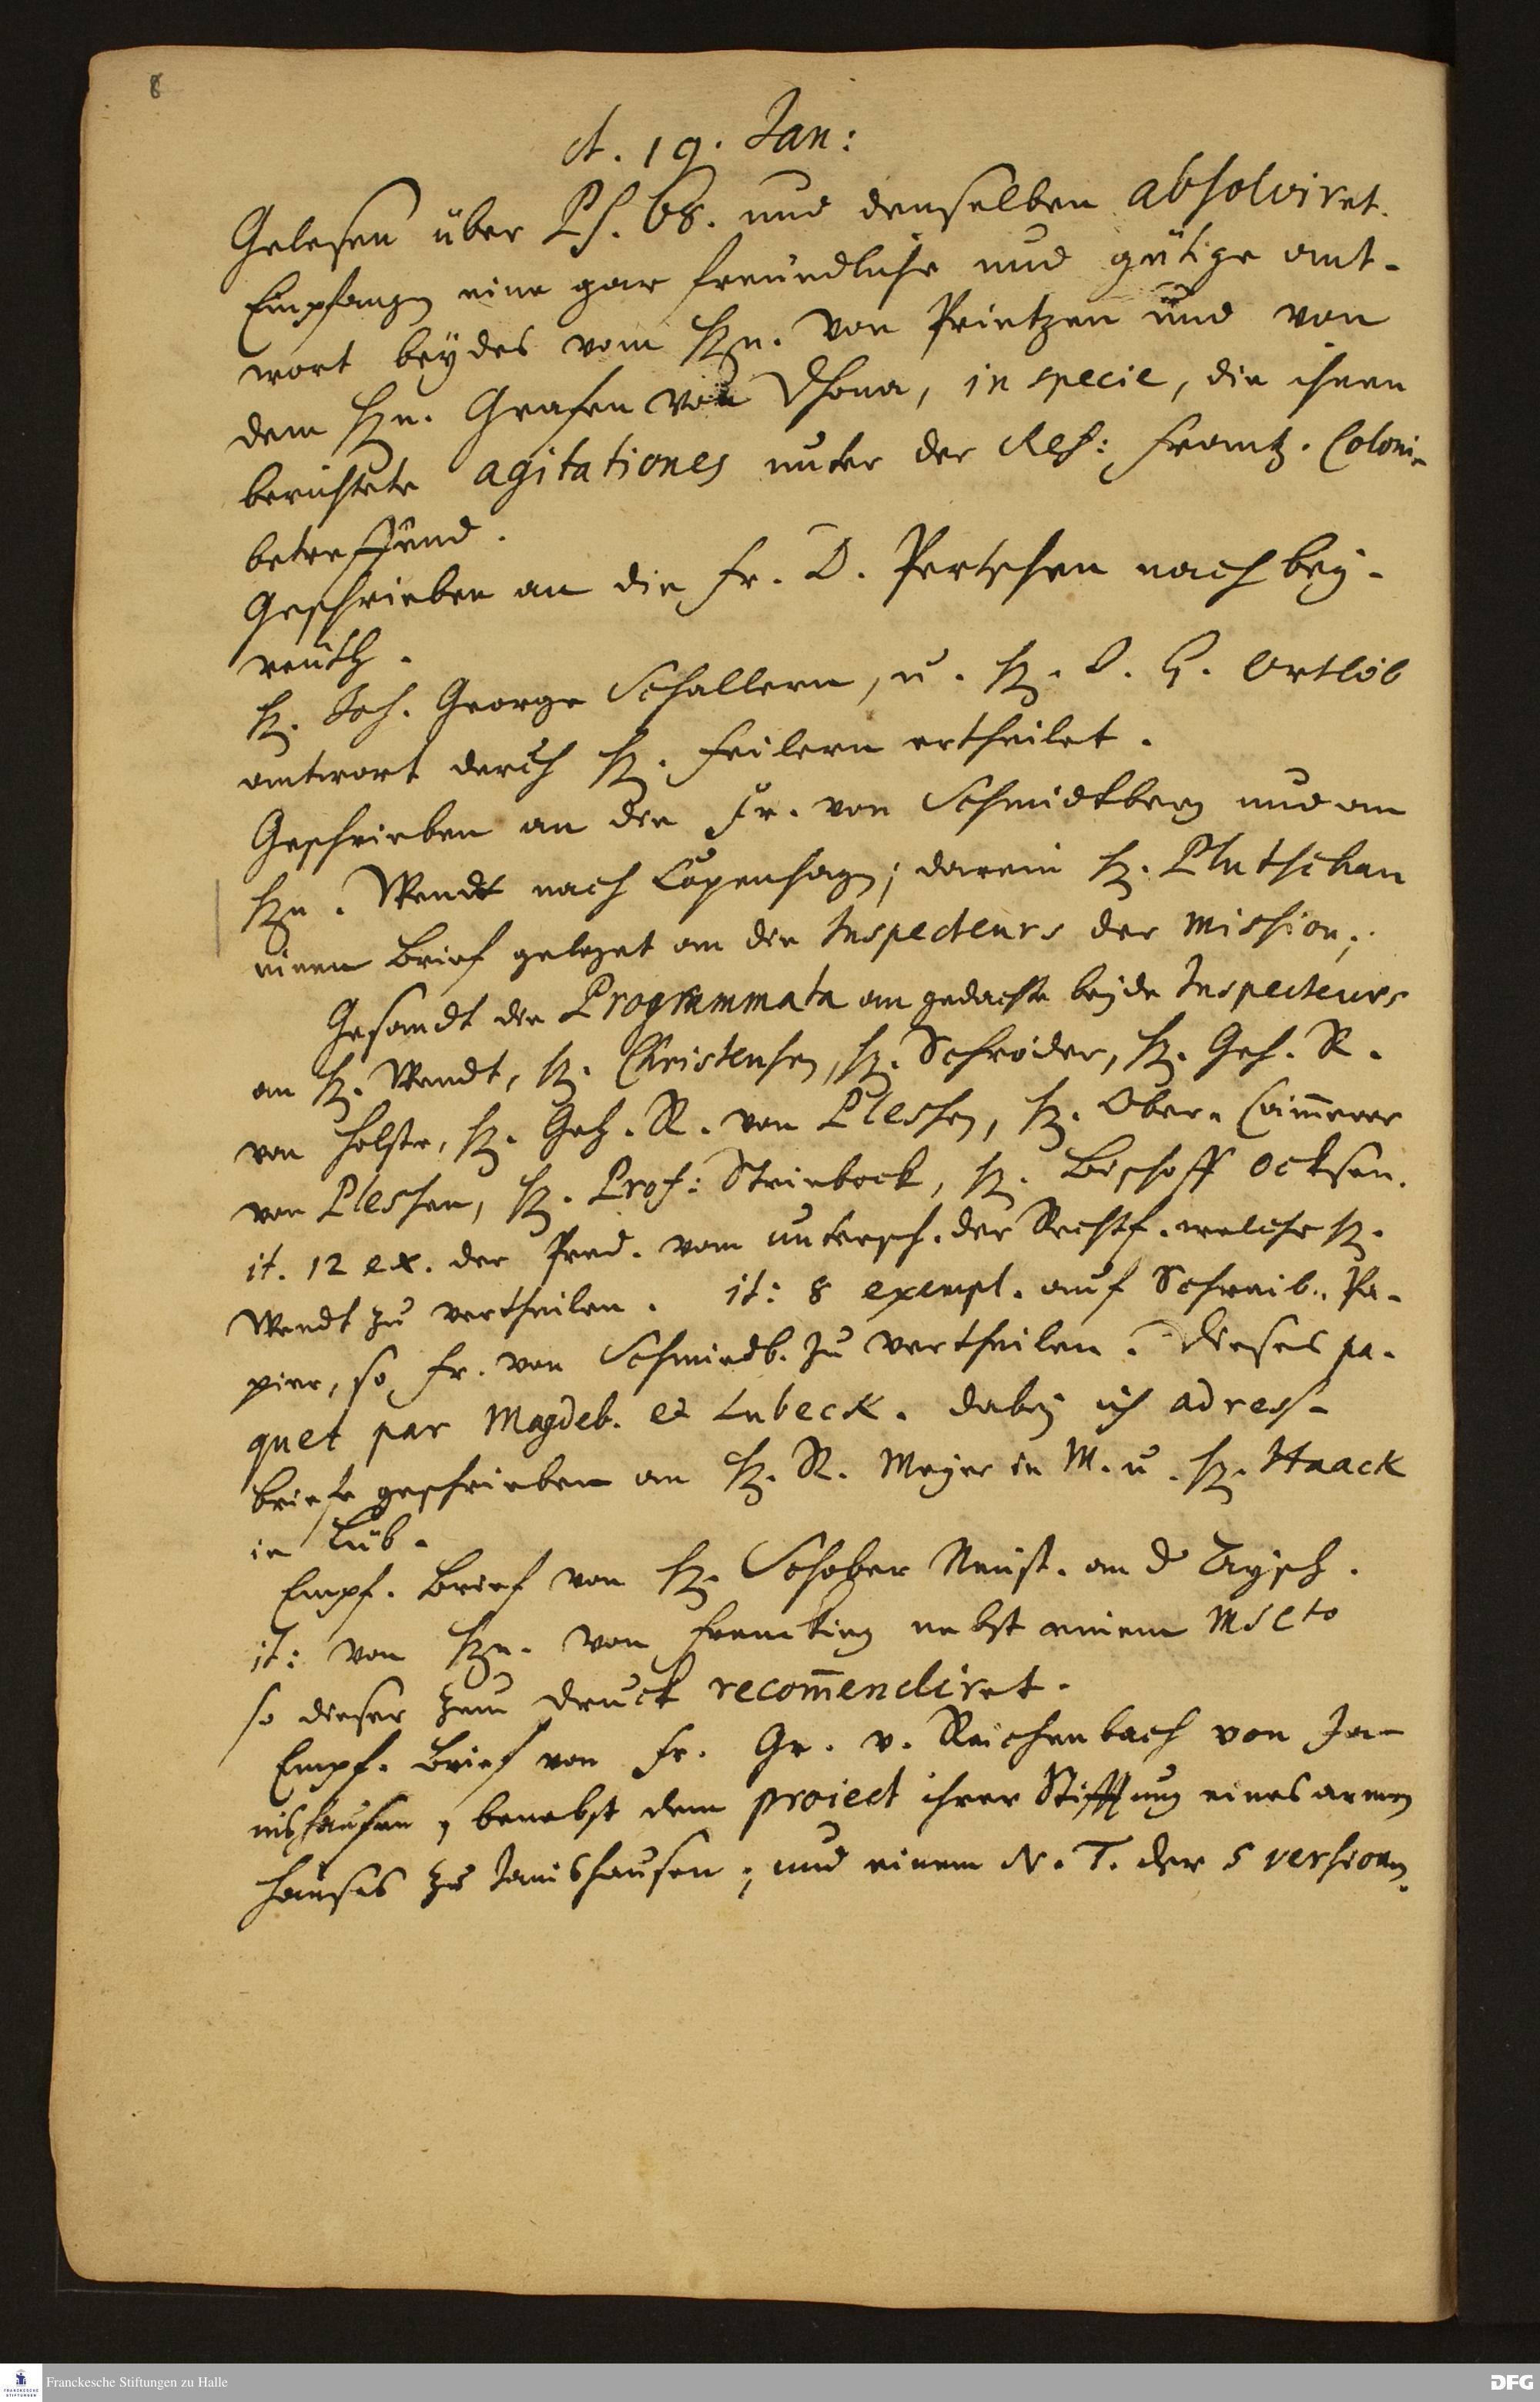 8
d. 19. Jan:
Gelesen über Ps. 68. und denselben absolviret.
Empfangen eine gar freundliche und gütige ant-
wort beydes vom Hrn. von Printzen und von
dem Hrn. Grafen von Dhona, in specie, die ihnen
berichtete agitationes unter der Ref: Frantz. Coloni-
betreffend.
Geschrieben an die Fr. D. Pertschen nach Bey-
reuth.
H. Joh. George Schallern, u. H. D. G. Ortlob
antwort durch H. Feilern ertheilet.
Geschrieben an die Fr. von Schmidtberg und an
Hrn. Wendt nach Copenhagen; darein H. Plutschau
einen Brief geleget an die Inspecteurs der Mission;
Gesandt die Programmata an gedachte beyde Inspecteurs
an H. Wendt, H. Christensen, H. Schröder, H. Geh. R.
von Holste, H. Geh. R. von Plessen, H. Ober-Cammerer
von Plessen, H. Prof: Steinbock, H. Bischoff Ocksen.
it. 12 ex. der Pred. vom untersch. der Rechtf. welche H.
Wendt zu vertheilen. it: 8 exempl. auf Schreib-Pa-
pier, so Fr. von Schmiedb. zu vertheilen. Dieses pa-
quet par Magdeb. et Lubeck. dabey ich adress-
briefe geschrieben an H. R. Meyer in M. u. H. Haack
in Lüb.
Empf. Brief von H. Schober Neust. an d Aysch.
it: von Hrn. von Francking nebst einem MSCto
so dieser zum Druck recommendiret.
Empf. Brief von Fr. Gr. v. Reichenbach von Ja-
nishausen, benebst dem project ihrer Stifftung eines armen
hauses zu Janishausen; und einem N. T. der 5 versionen.
Franckesche Stiftungen zu Halle
DFG